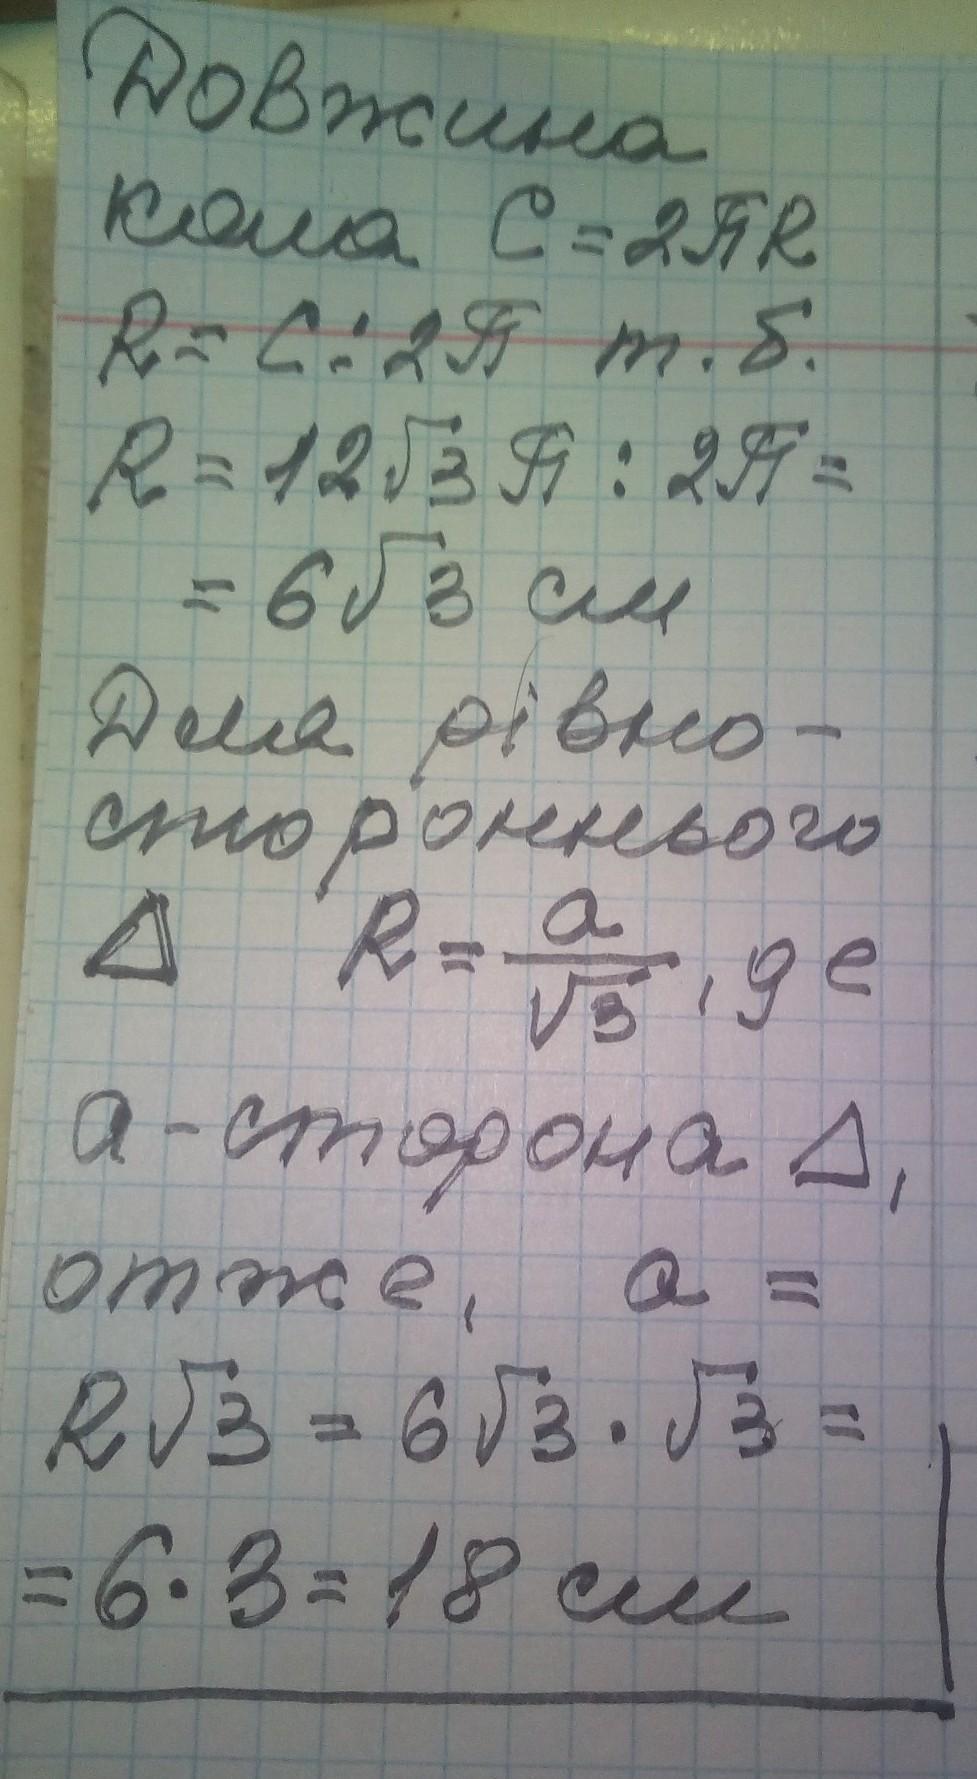 Довжина
кола C = 2πR
R = C : 2π т. б.
R = 12√3 π : 2π =
= 6√3 см
Для рівно-
стороннього
Δ R = a/√3, де
a - сторона Δ,
отже, a =
R√3 = 6√3 · √3 =
= 6 · 3 = 18 см